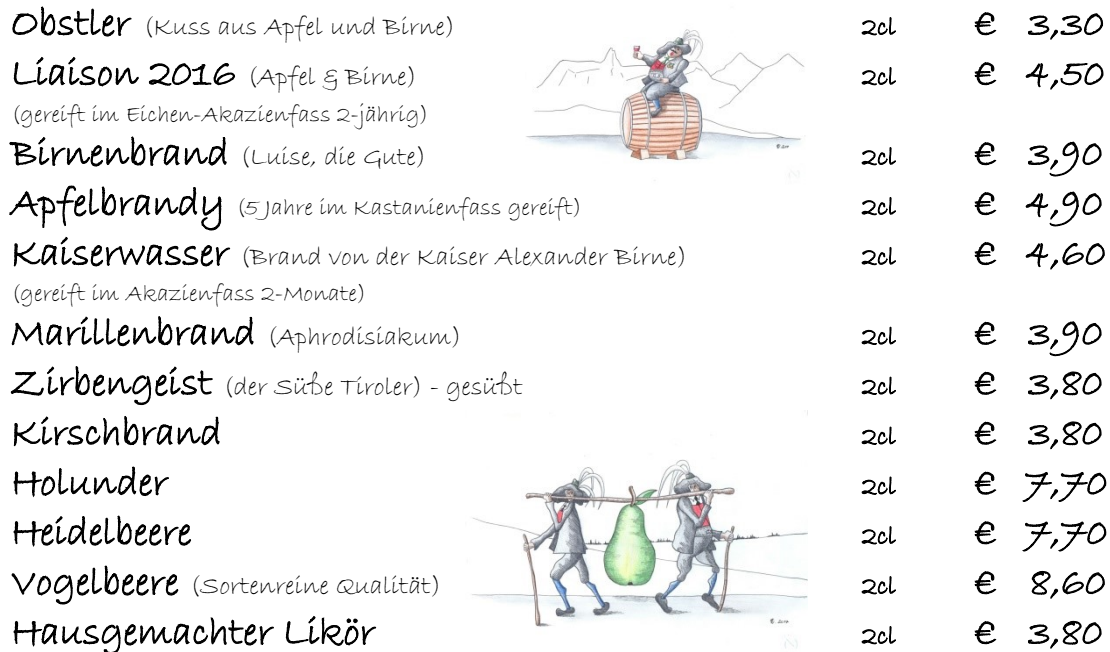 Obstler (Kuss aus Apfel und Birne) 2cl € 3,30
Liaison 2016 (Apfel & Birne) 2cl € 4,50
(gereift im Eichen-Akazienfass 2-jährig)
Birnenbrand (Luise, die Gute) 2cl € 3,90
Apfelbrandy (5 Jahre im Kastanienfass gereift) 2cl € 4,90
Kaiserwasser (Brand von der Kaiser Alexander Birne) 2cl € 4,60
(gereift im Akazienfass 2-Monate)
Marillenbrand (Aphrodisiakum) 2cl € 3,90
Zirbengeist (der Süße Tiroler) - gesüßt 2cl € 3,80
Kirschbrand 2cl € 3,80
Holunder 2cl € 7,70
Heidelbeere 2cl € 7,70
Vogelbeere (Sortenreine Qualität) 2cl € 8,60
Hausgemachter Likör 2cl € 3,80